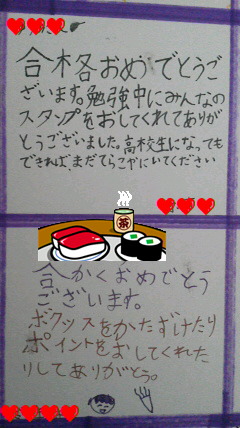 合格おめでとうご
ざいます。勉強中にみんなの
スタンプをおしてくれてありが
とうございました。高校生になっても
できれば、まだてらこやにいてください
茶
合かくおめでとう
ございます。
ボックスをかたずけたり
ポイントをおしてくれた
りしてありがとう。